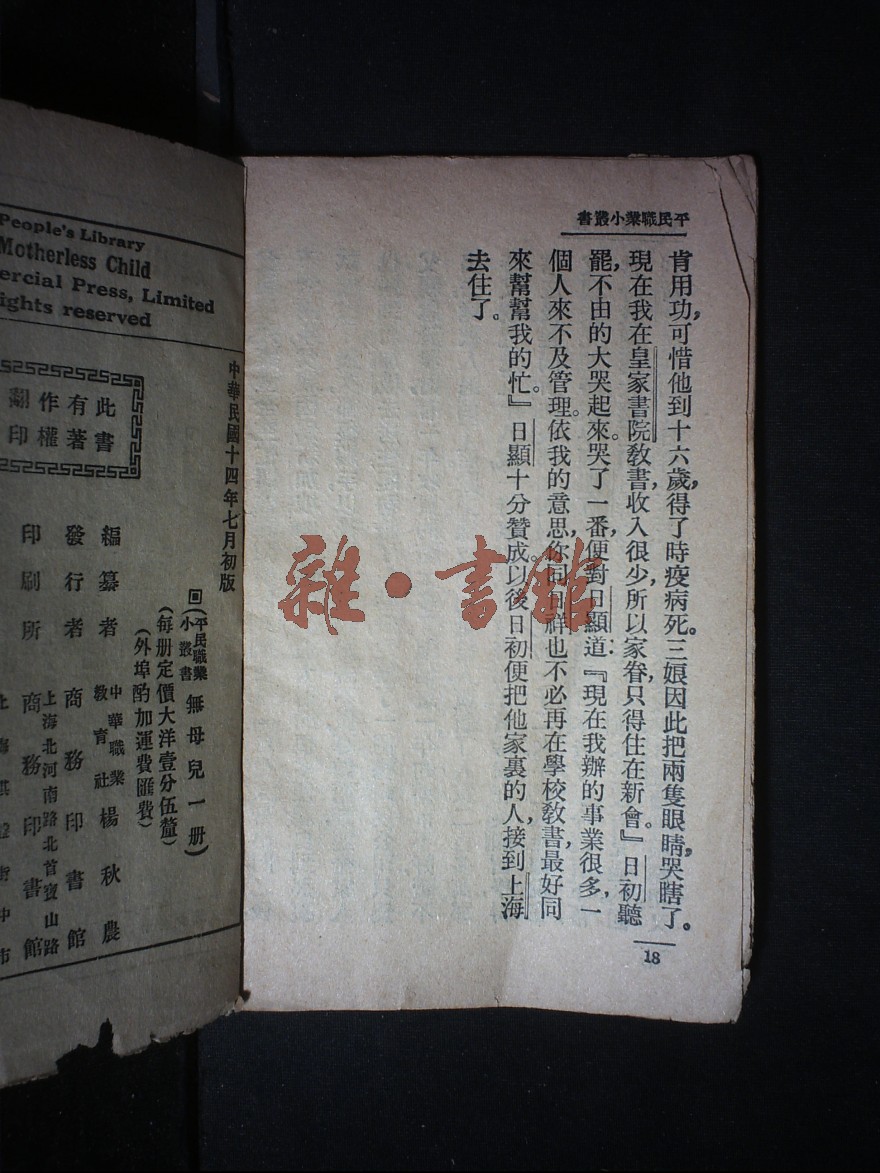 平民職業小叢書
肯用功,可惜他到十六歲,得了時疫病死。三娘因此把兩隻眼睛,哭瞎了。
現在我在皇家書院教書,收入很少,所以家眷,只得住在新會。』日初聽
罷,不由的大哭起來。哭了一番,便對日顯道:『現在我辦的事業很多,一
個人來不及管理。依我的意思,你同日祥也不必再在學校教書,最好同
來幫幫我的忙。』日顯十分贊成。以後日初便把他家裏的人,接到上海
去住了。
18
雜·書館
People's Library
Motherless Child
ercial Press, Limited
ights reserved
中華民國十四年七月初版
回(平民職業小叢書無母兒一册)
(每册定價大洋壹分伍釐)
(外埠酌加運費匯費)
編纂者 中華職業教育社 楊秋農
發行者 商務印書館
上海北河南路北首寶山路
印刷所 商務印書館
此書
有著
作權
翻印